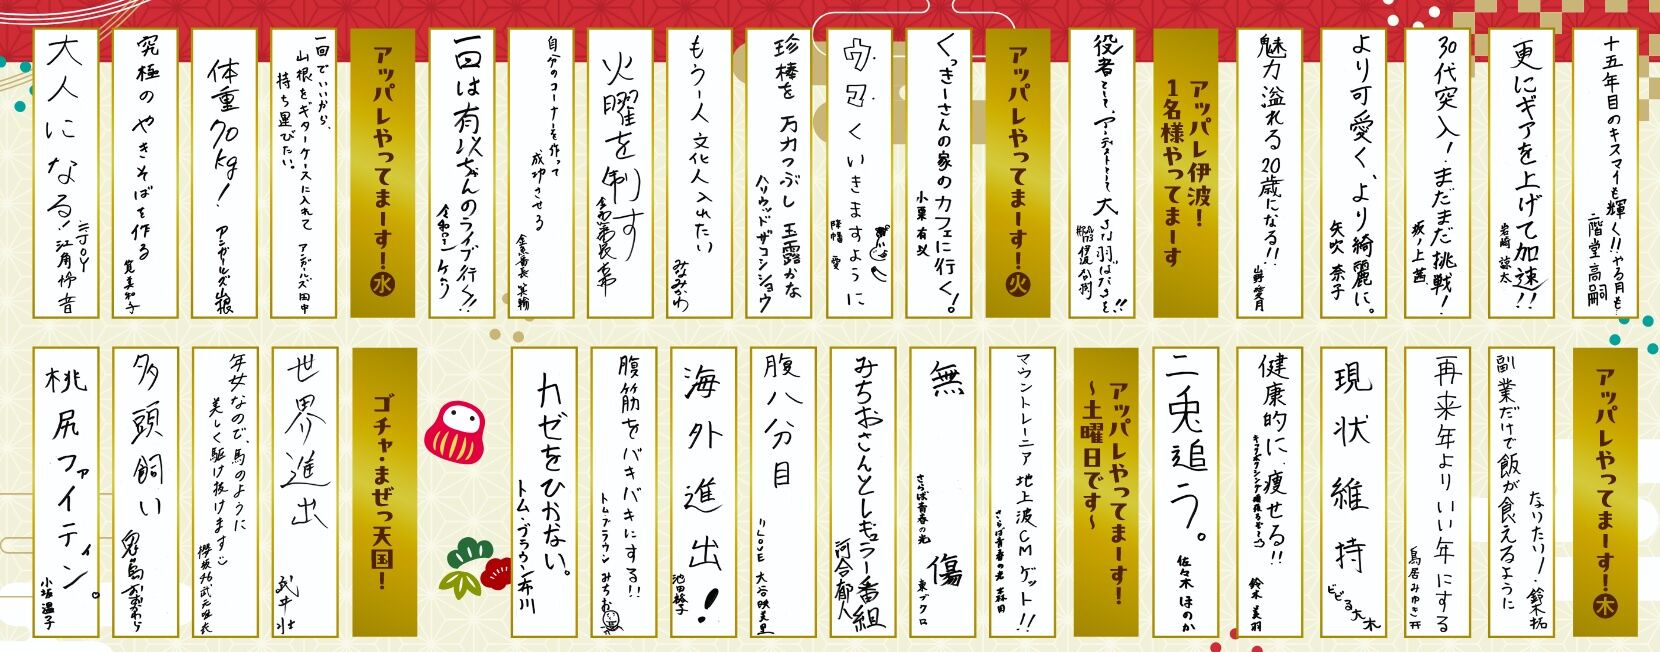 十五年目のキスマイも輝く!!やる月も
二階堂高嗣
更にギアを上げて加速!!
岩崎諒太
30代突入!まだまだ挑戦!
坂ノ上茜
より可愛く、より綺麗に。
矢吹奈子
魅力溢れる20歳になる!!
愛月
アッパレ伊波!
1名様やってまーす
役者として、アーティストとして大きな羽ばたきを!!
アッパレやってまーす!火
くっきーさんの家のカフェに行く!
小栗有以
ウマくいきますように
珍棒を万力つぶし玉露かな
ハリウッドザコシショウ
もう一人文化人入れたい
みなみかわ
火曜を制す
自分のコーナーを作って
成功させる
金魚番長 箕輪
一回は有以ちゃんのライブ行く!!
令和ロマン ケムリ
アッパレやってまーす!水
一回でいいから、
山根をギターケースに入れて
持ち運びたい。
アンガールズ田中
体重70kg!
アンガールズ山根
究極のやきそばを作る
筧美和子
大人になる!
=LOVE
アッパレやってまーす!木
副業だけで飯が食えるように
なりたい!
鈴木拓
再来年よりいい年にする
鳥居みゆき
現状維持
ビビる大木
健康的に痩せる!!
鈴木美羽
二兎追う。
佐々木ほのか
アッパレやってまーす!
~土曜日です~
マウントレーニア地上波CMゲット!!
さらば青春の光 森田
無傷
さらば青春の光 東ブクロ
みちおさんとレギュラー番組
河合郁人
腹八分目
=LOVE 大谷映美里
海外進出!
池田裕子
腹筋をバキバキにする!!
トム・ブラウン みちお
カゼをひかない。
トム・ブラウン布川
ゴチャ・まぜっ天国!
世界進出
武井壮
年女なので、馬のように
美しく駆け抜けます
櫻坂46武元唯衣
多頭飼い
桃尻ファイティン。
小坂温子